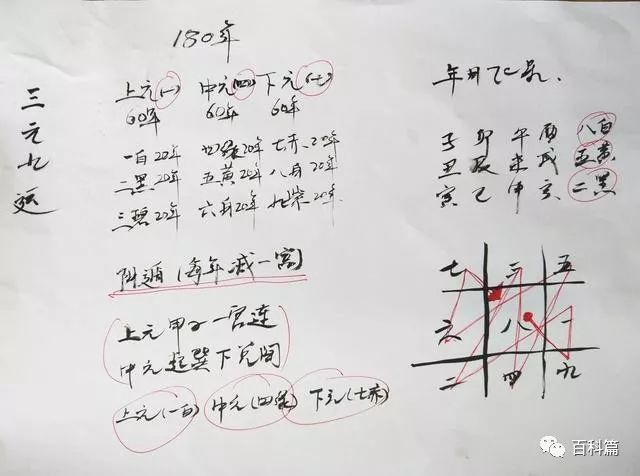 三元九运
180年
上元(一) 中元(四) 下元(七)
60年 60年 60年
一白20年 四绿20年 七赤20年
二黑20年 五黄20年 八白20年
三碧20年 六白20年 九紫20年
阴遁(每年减一宫)
上元甲子一宫连
中元起巽下兑间
上元(一白) 中元(四绿) 下元(七赤)
年月飞星.
子 卯 午 酉 八白
丑 辰 未 戌 五黄
寅 巳 申 亥 二黑
七 三 五
六 八 一
二 四 九
百科篇